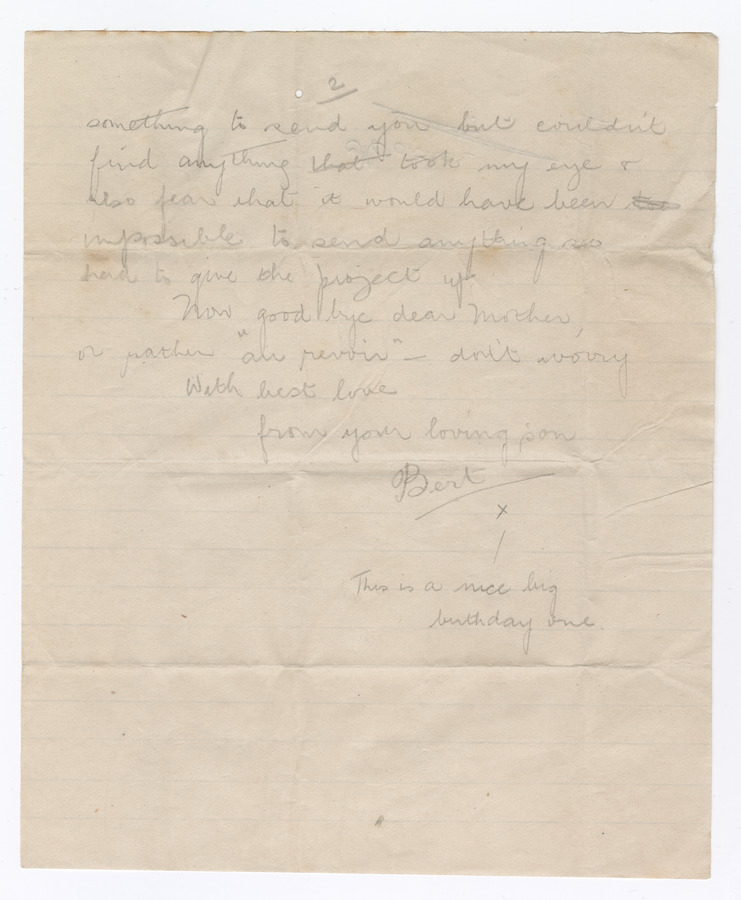 2
something to send you but couldn't
find anything that took my eye &
also fear that it would have been
impossible to send anything so
had to give the project up.
Now good bye dear Mother,
or rather "au revoir" — don't worry
With best love
from your loving son
Bert
x
This is a nice big
birthday one.